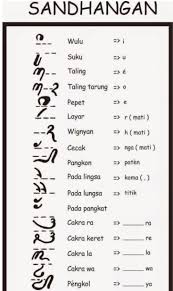 SANDHANGAN
Wulu => i
Suku => u
Taling => é
Taling tarung => o
Pepet => e
Layar => r ( mati )
Wignyan => h ( mati )
Cecak => nga ( mati )
Pangkon => paten
Pada lingsa => koma ( , )
Pada lungsa => titik
Pada pangkat
Cakra ra => ____ ra
Cakra keret => ____ re
Cakra la => ____ la
Cakra wa => ____ wa
Pèngkol => ____ ya